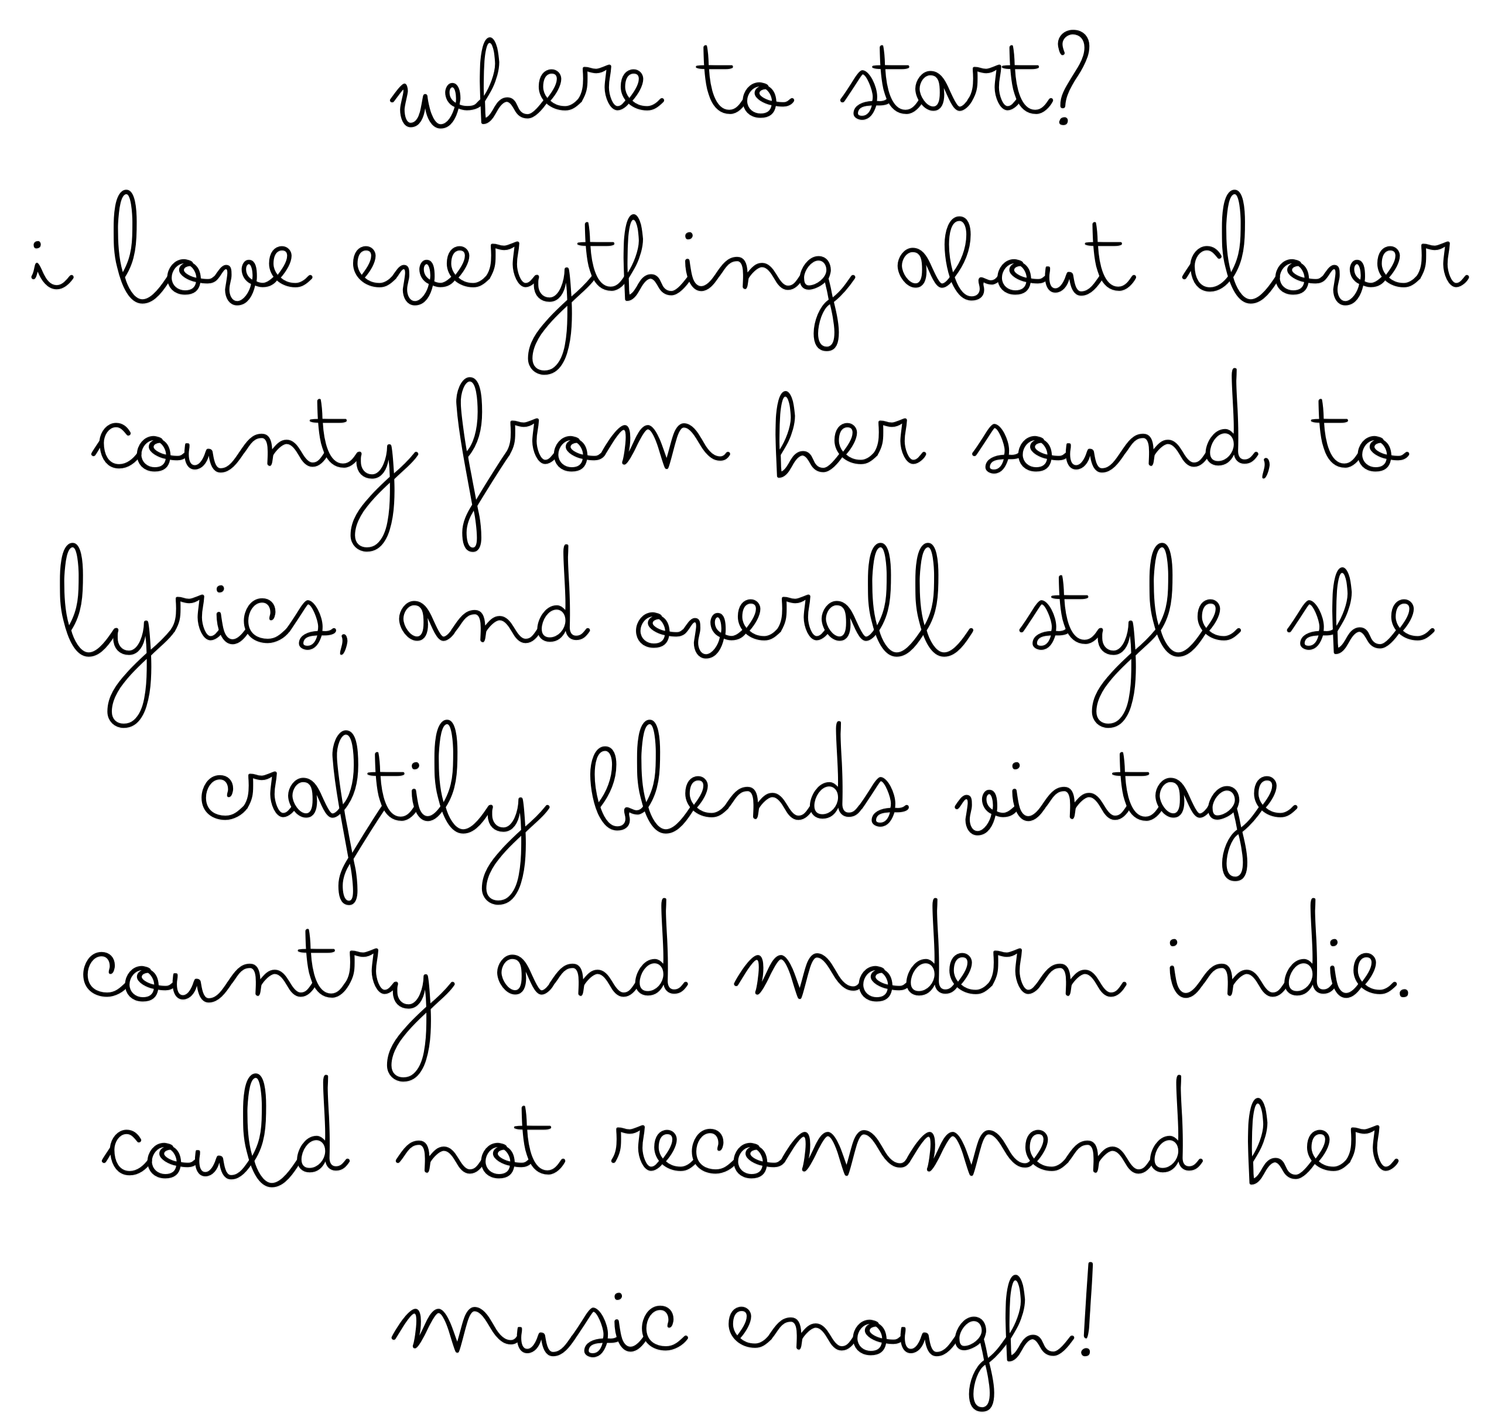 where to start?
i love everything about clover
county from her sound, to
lyrics, and overall style she
craftily blends vintage
country and modern indie.
could not recommend her
music enough!